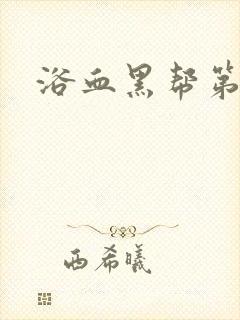 浴血黑帮第
西希曦